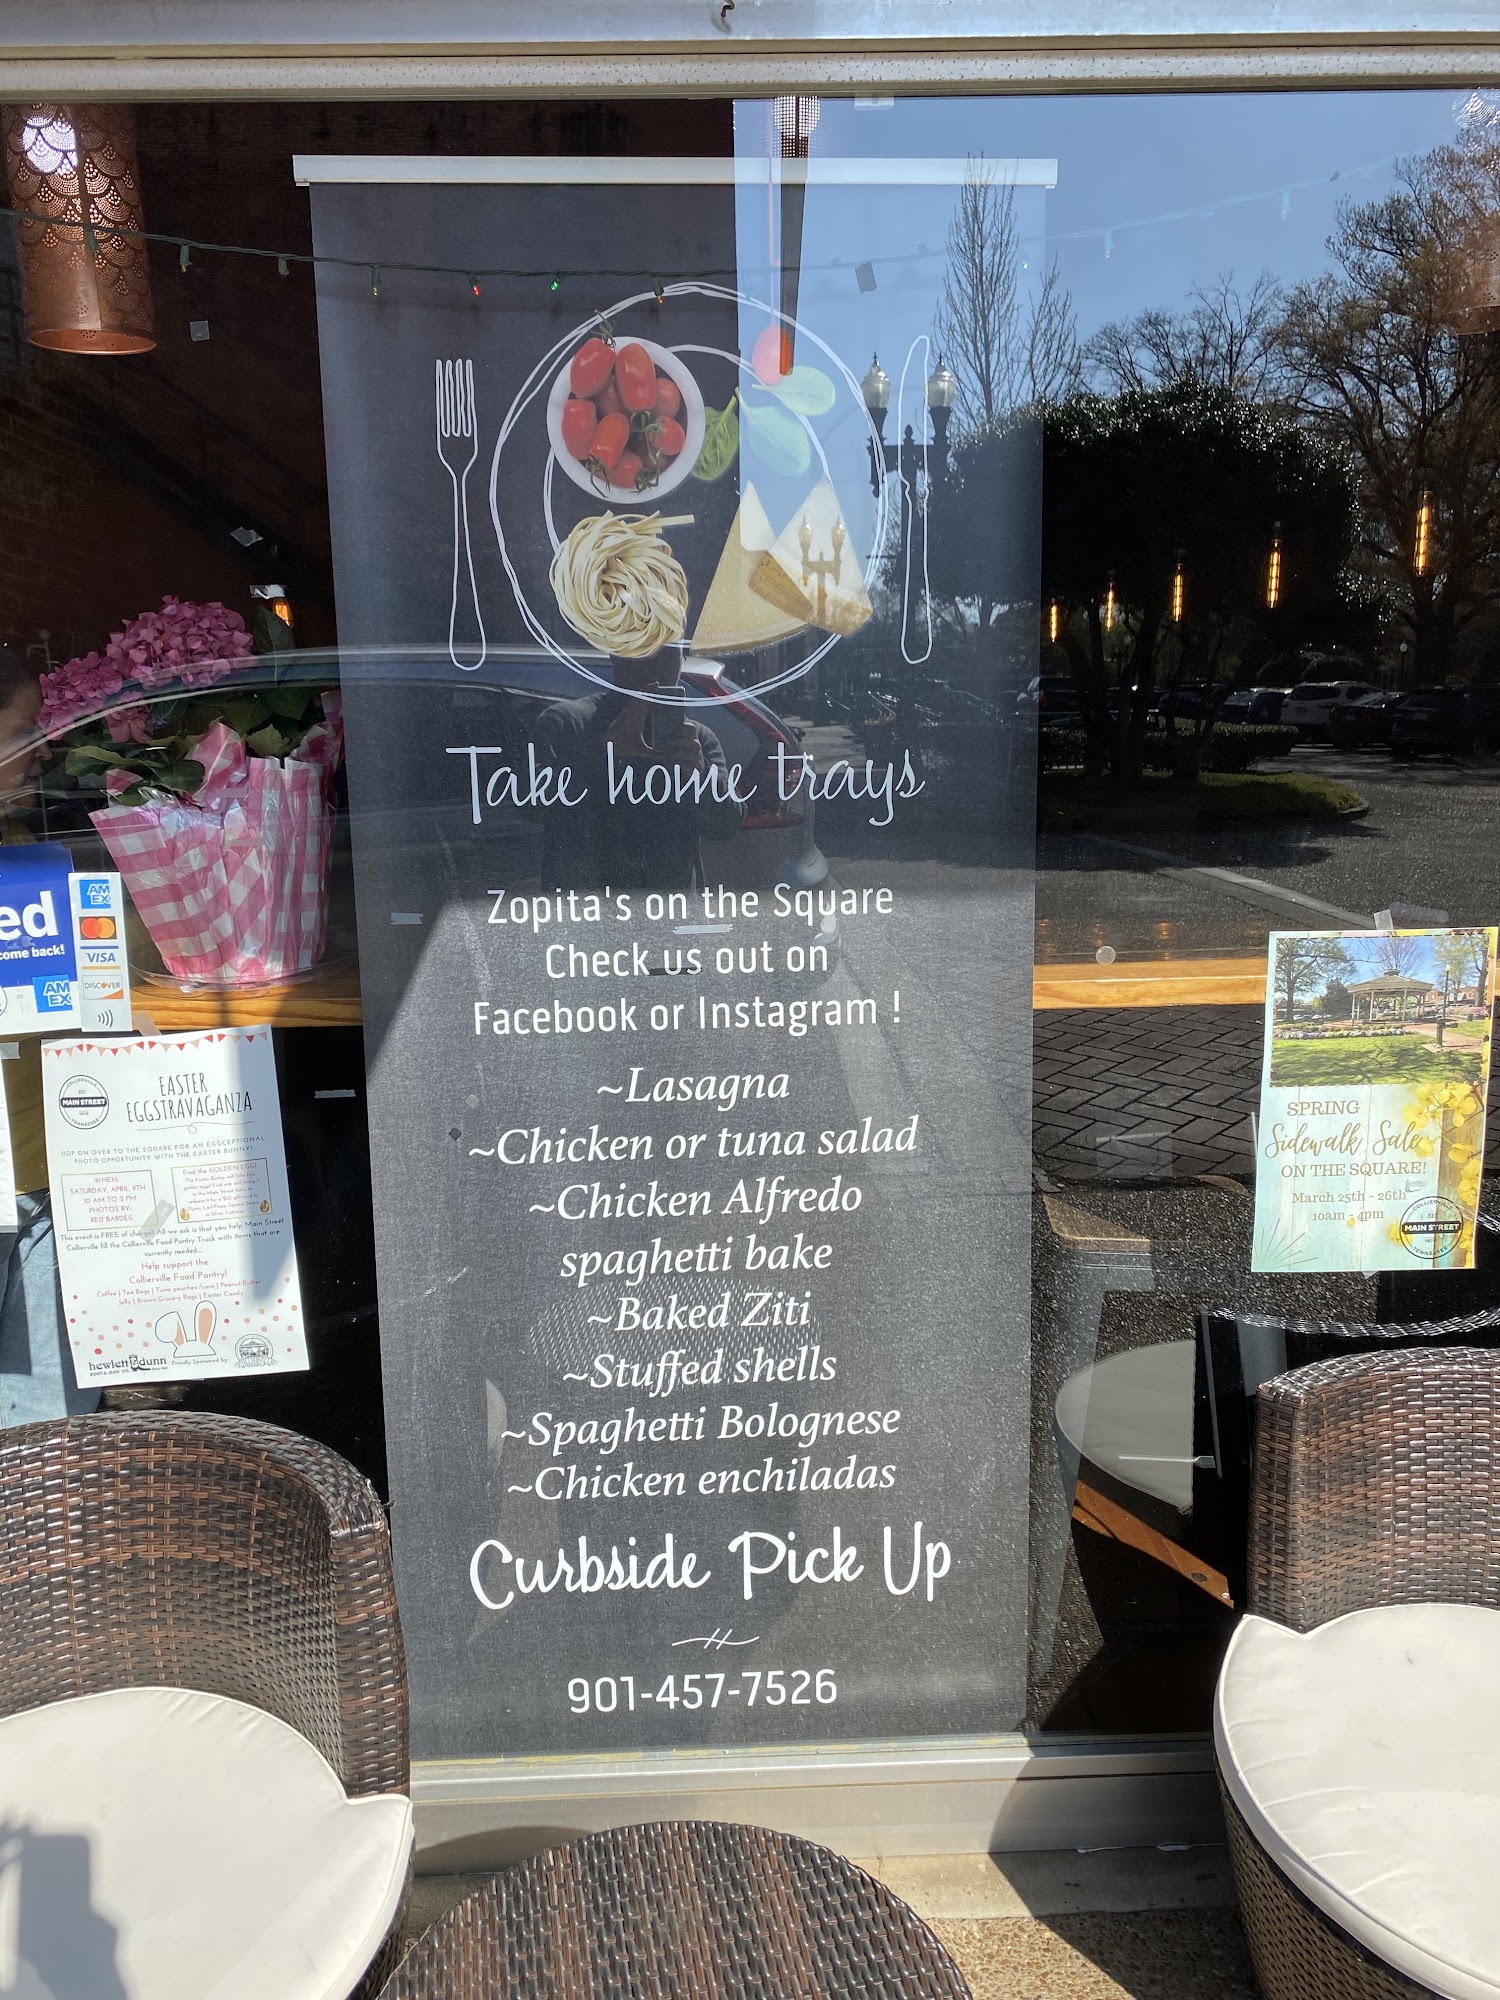 Take home trays
Zopita's on the Square
Check us out on
Facebook or Instagram !
~Lasagna
~Chicken or tuna salad
~Chicken Alfredo
spaghetti bake
~Baked Ziti
~Stuffed shells
~Spaghetti Bolognese
~Chicken enchiladas
Curbside Pick Up
901-457-7526
ed
come back!
AM
EX
AM
EX
VISA
DISCOVER
COLLIERVILLE
EST.
MAIN STREET
1870
TENNESSEE
EASTER
EGGSTRAVAGANZA
HOP ON OVER TO THE SQUARE FOR AN EGGCEPTIONAL
PHOTO OPPORTUNITY WITH THE EASTER BUNNY!
WHEN:
SATURDAY, APRIL 9TH
10 AM TO 2 PM
PHOTOS BY:
RED BARDES
Find the GOLDEN EGG!
The Easter Bunny will hide four
golden eggs! Find one and bring it
to the Main Street
This event is FREE of charge! All we ask is that you help Main Street
Collierville fill the Collierville Food Pantry Truck with items that are
currently needed...
Help support the
Collierville Food Pantry!
Coffee | Tea Bags | Tuna pouches /cans | Peanut Butter
Jelly | Brown Grocery Bags | Easter Candy
hewlett & dunn
BOOT & JEAN CO.
Proudly Sponsored by:
SPRING
Sidewalk Sale
ON THE SQUARE!
March 25th - 26th
10am - 4pm
COLLIERVILLE
EST.
MAIN STREET
1870
TENNESSEE